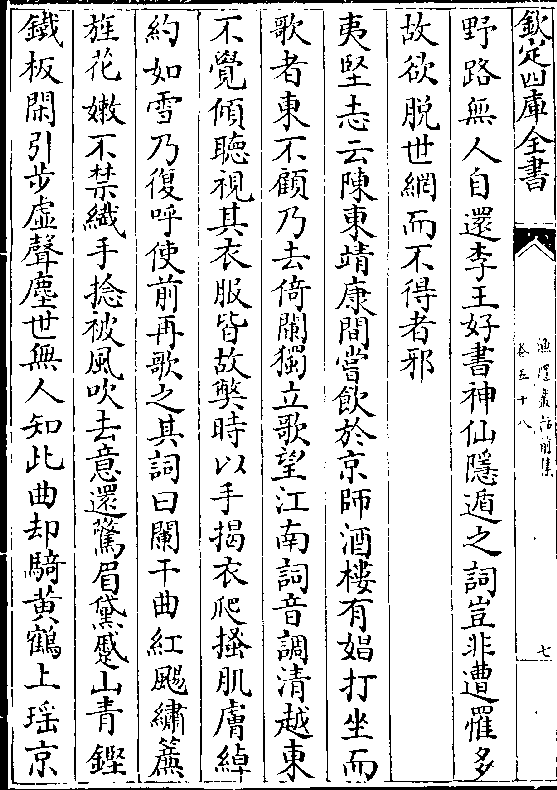 欽定四庫全書
漁隱叢話前集
卷五十八
七
野路無人自還李王好書神仙隱遁之詞豈非遭罹多
故欲脱世網而不得者邪
夷堅志云陳東靖康間嘗飲於京師酒樓有娼打坐而
歌者東不顧乃去倚闌獨立歌望江南詞音調清越東
不覺傾聽視其衣服皆故弊時以手揭衣爬搔肌膚綽
約如雪乃復呼使前再歌之其詞曰闌干曲紅颺繡簾
旌花嫩不禁纖手捻被風吹去意還驚眉黛蹙山青鏗
鐵板閑引步虛聲塵世無人知此曲却騎黃鶴上瑶京